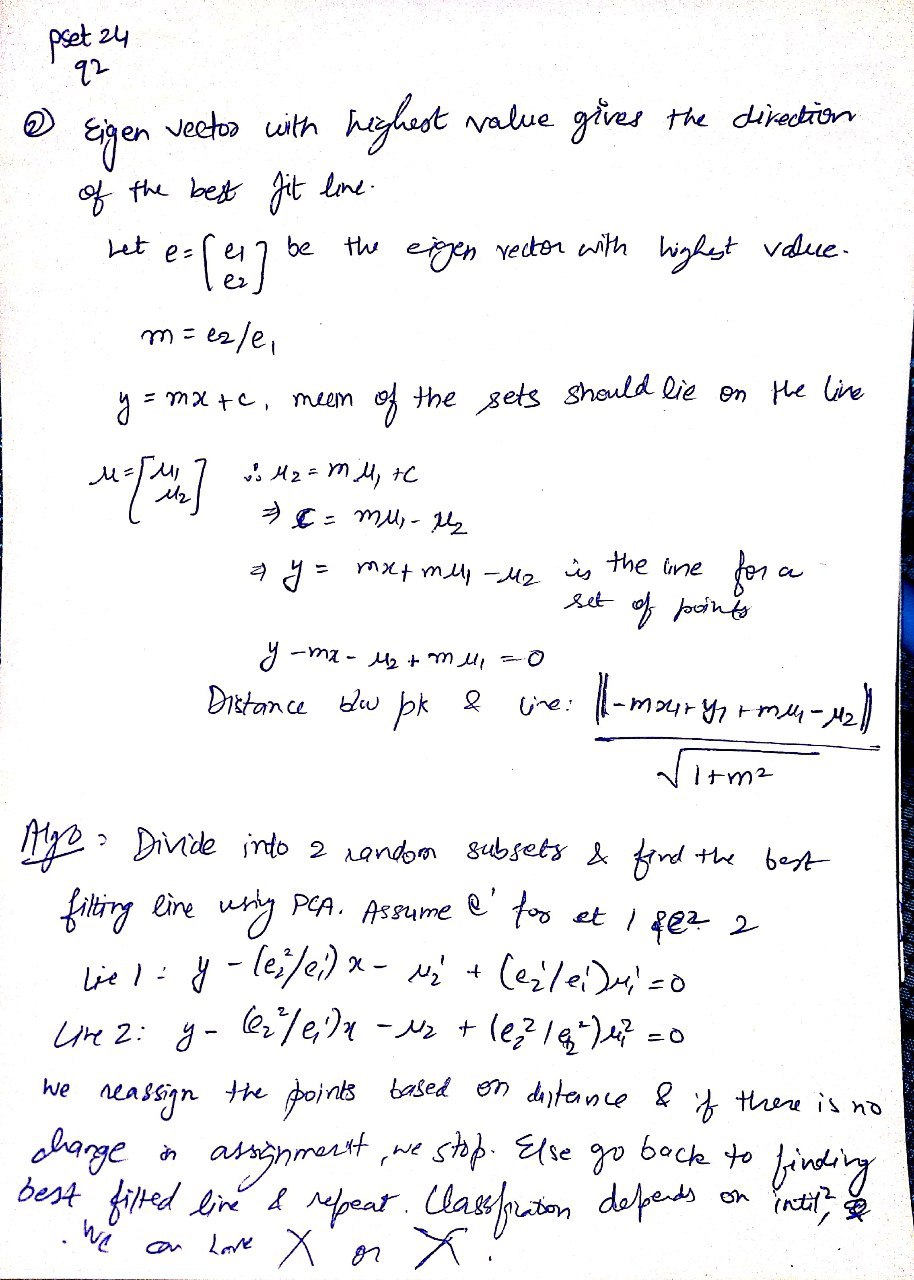 pset 24
q2
② Eigen vector with highest value gives the direction
of the best fit line.
Let e = [e1 e2] be the eigen vector with highest value.
m = e2/e1
y = mx + c, meem of the sets should lie on the line
μ = [μ1 μ2] ∴ μ2 = m μ1 + c
⇒ c = mμ1 - μ2
⇒ y = mx + mμ1 - μ2 is the line for a
set of points
y - mx - μ2 + mμ1 = 0
Distance b/w pk & line: ||-mx1 + y1 + mμ1 - μ2|| / √1+m²
Algo: Divide into 2 random subsets & find the best
fitting line using PCA. Assume e' for et 1 & e² 2
Lie 1: y - (e₂²/e₁')x - μ₂' + (e₂'/e₁')μ₁' = 0
Line 2: y - (e₂²/e₁')x - μ2 + (e₂²/e₂²)μ₁² = 0
We reassign the points based on distance & if there is no
change in assignment, we stop. Else go back to finding
best fitted line & repeat. Classification depends on
We can have X or X.